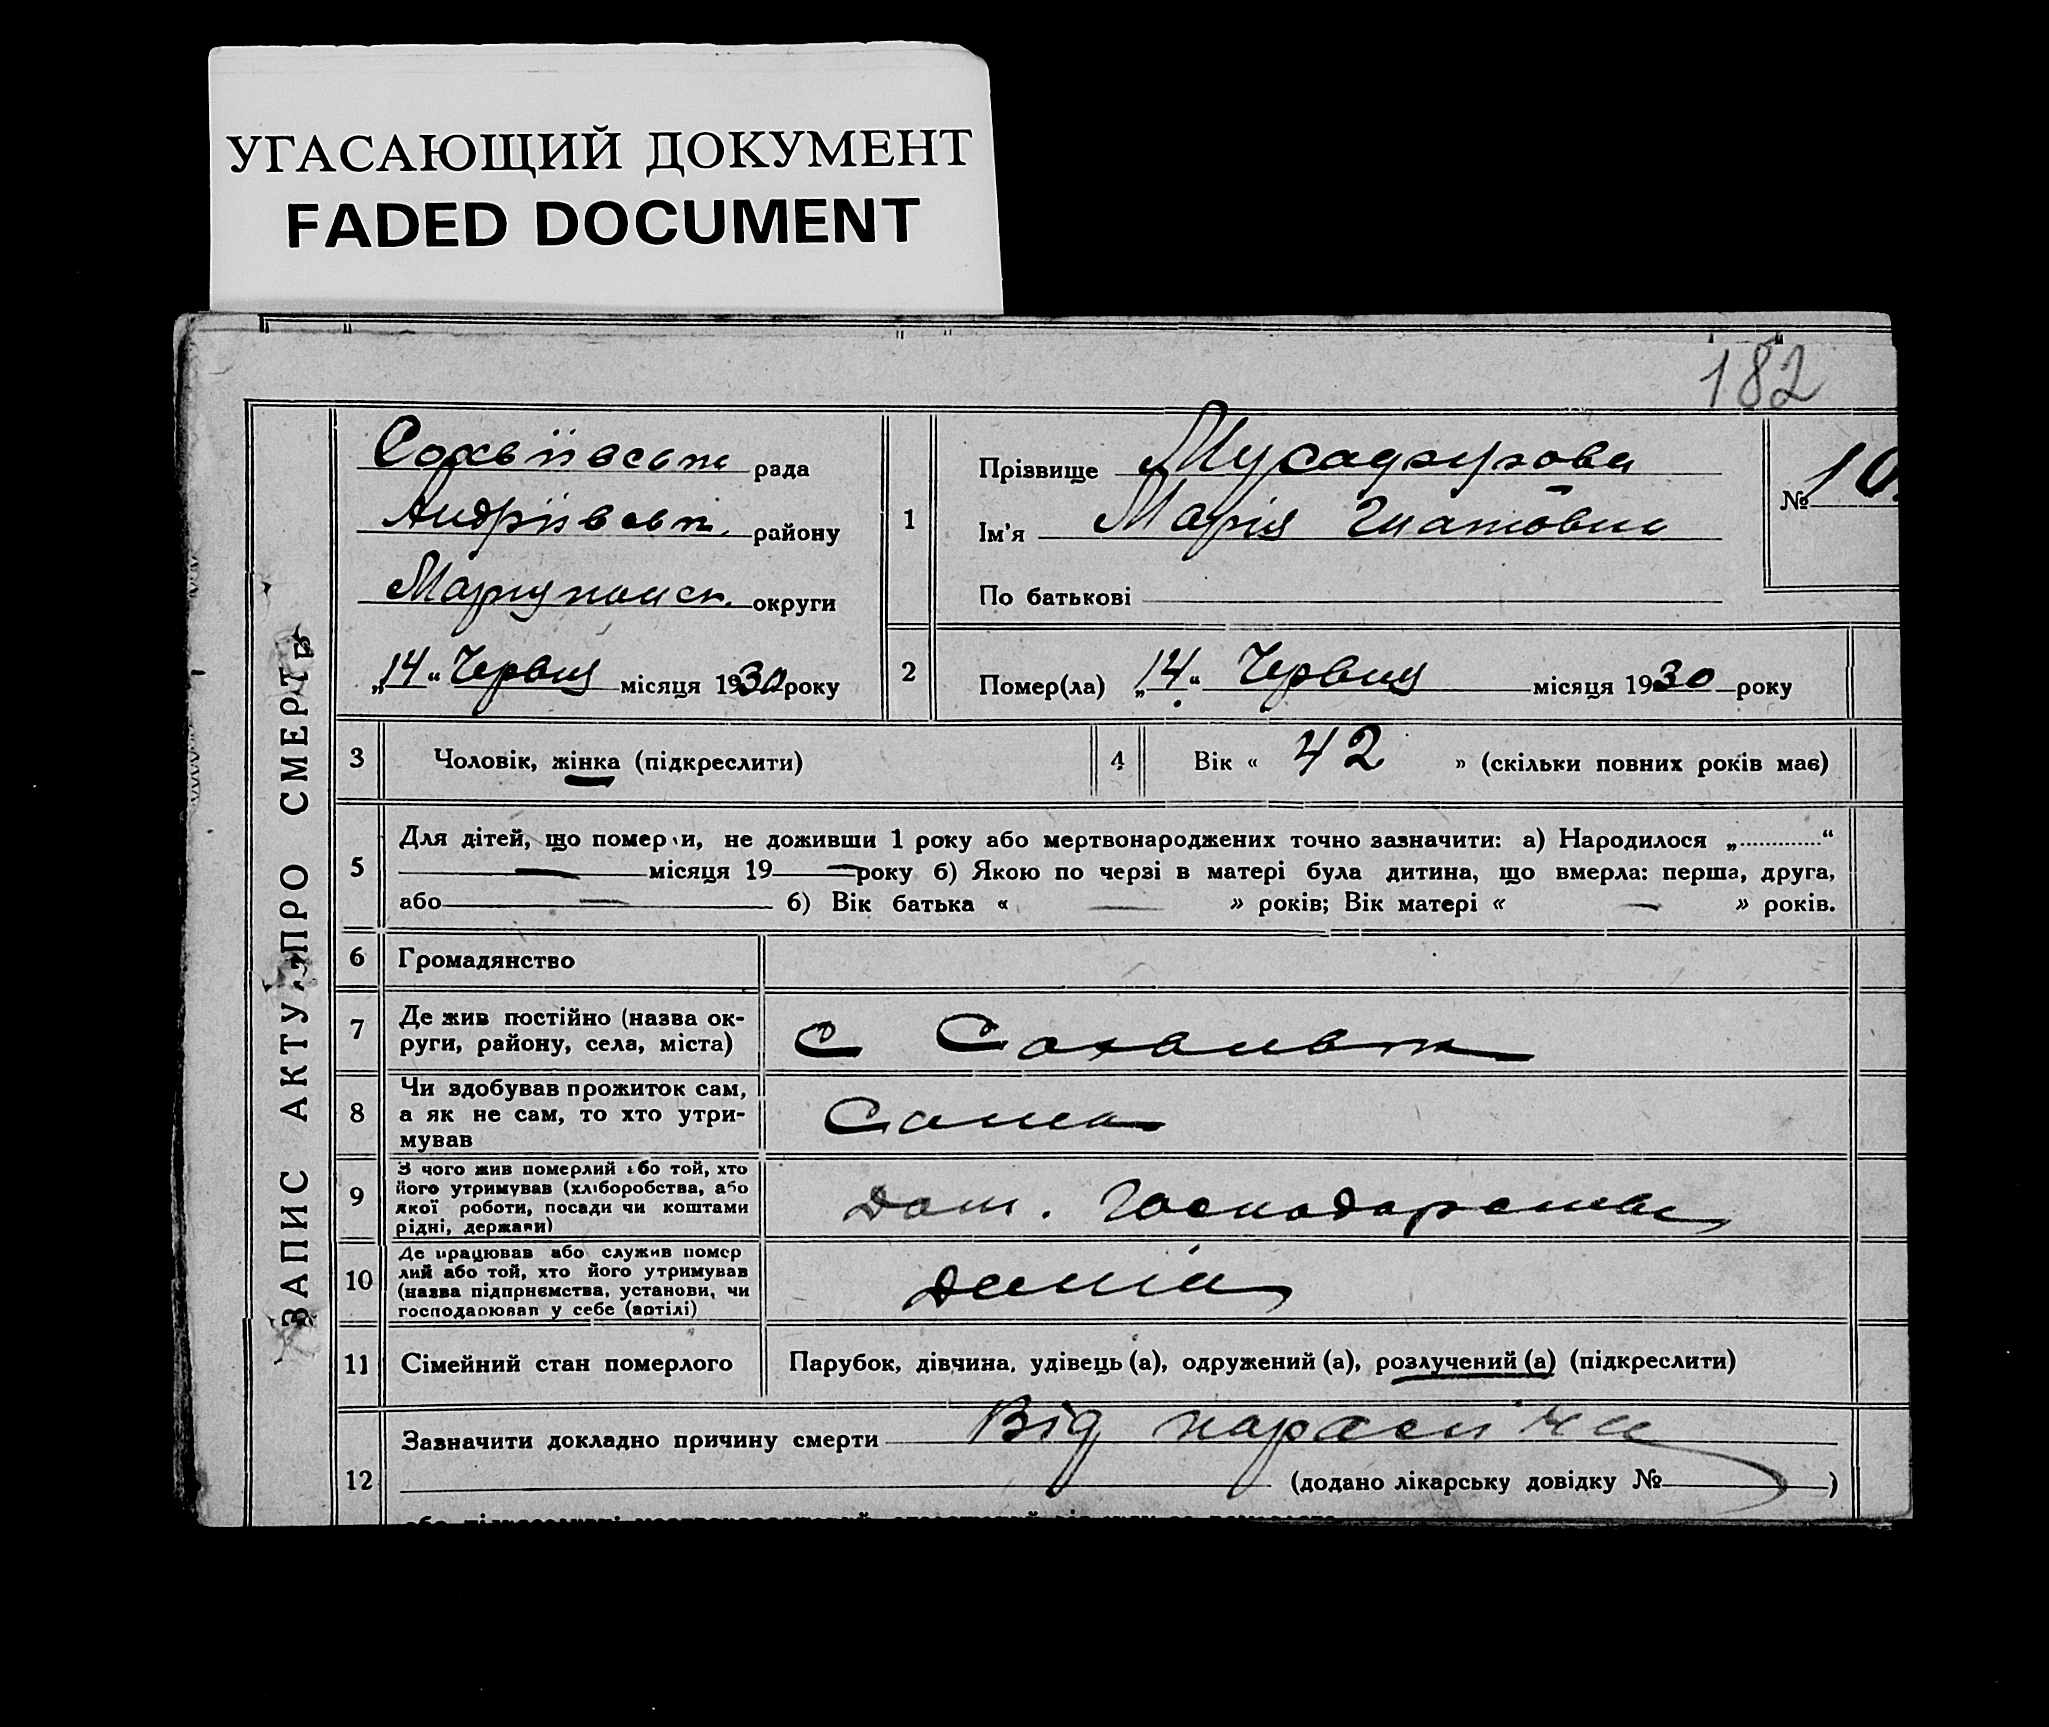 УГАСАЮЩИЙ ДОКУМЕНТ
FADED DOCUMENT
182
ЗАПИС АКТУ ПРО СМЕРТЬ
рада
Андріївськ. району
Маріупольск. округи
„14“ Червня місяця 1930 року
1
Прізвище
Ім'я Марія Гнатовна
По батькові
№ 10
2
Помер(ла) „14“ Червня місяця 1930 року
3 Чоловік, жінка (підкреслити)
4 Вік « 42 » (скільки повних років має)
5 Для дітей, що померли, не доживши 1 року або мертвонароджених точно зазначити: а) Народилося „ “
— місяця 19— року б) Якою по черзі в матері була дитина, що вмерла: перша, друга,
або — б) Вік батька « — » років; Вік матері « — » років.
6 Громадянство
7 Де жив постійно (назва ок-
руги, району, села, міста)
С
8 Чи здобував прожиток сам,
а як не сам, то хто утри-
мував
Сама
9 З чого жив померлий або той, хто
його утримував (хліборобства, або
якої роботи, посади чи коштами
рідні, держави)
Дом. Господарства
10 Де працював або служив помер
лий або той, хто його утримував
(назва підприємства, установи, чи
господарював у себе (артілі)
11 Сімейний стан померлого
Парубок, дівчина, удівець (а), одружений (а), розлучений (а) (підкреслити)
12 Зазначити докладно причину смерти Від
(додано лікарську довідку № )